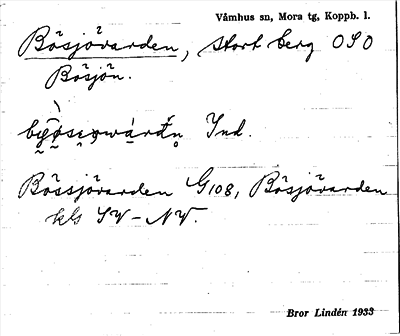 Våmhus sn, Mora tg, Koppb. l.
Bösjövarden, stort berg OSO
Bösjön.
Ind.
Bössjövarden G108, Bösjövarden
kls SV–NV.
Bror Lindén 1933